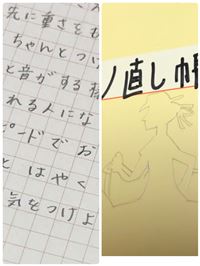 先に重さをも
ちゃんとつい
と音がする
れる人にな
ピードでお
と はやく
気をつけよ
ノ直し帳